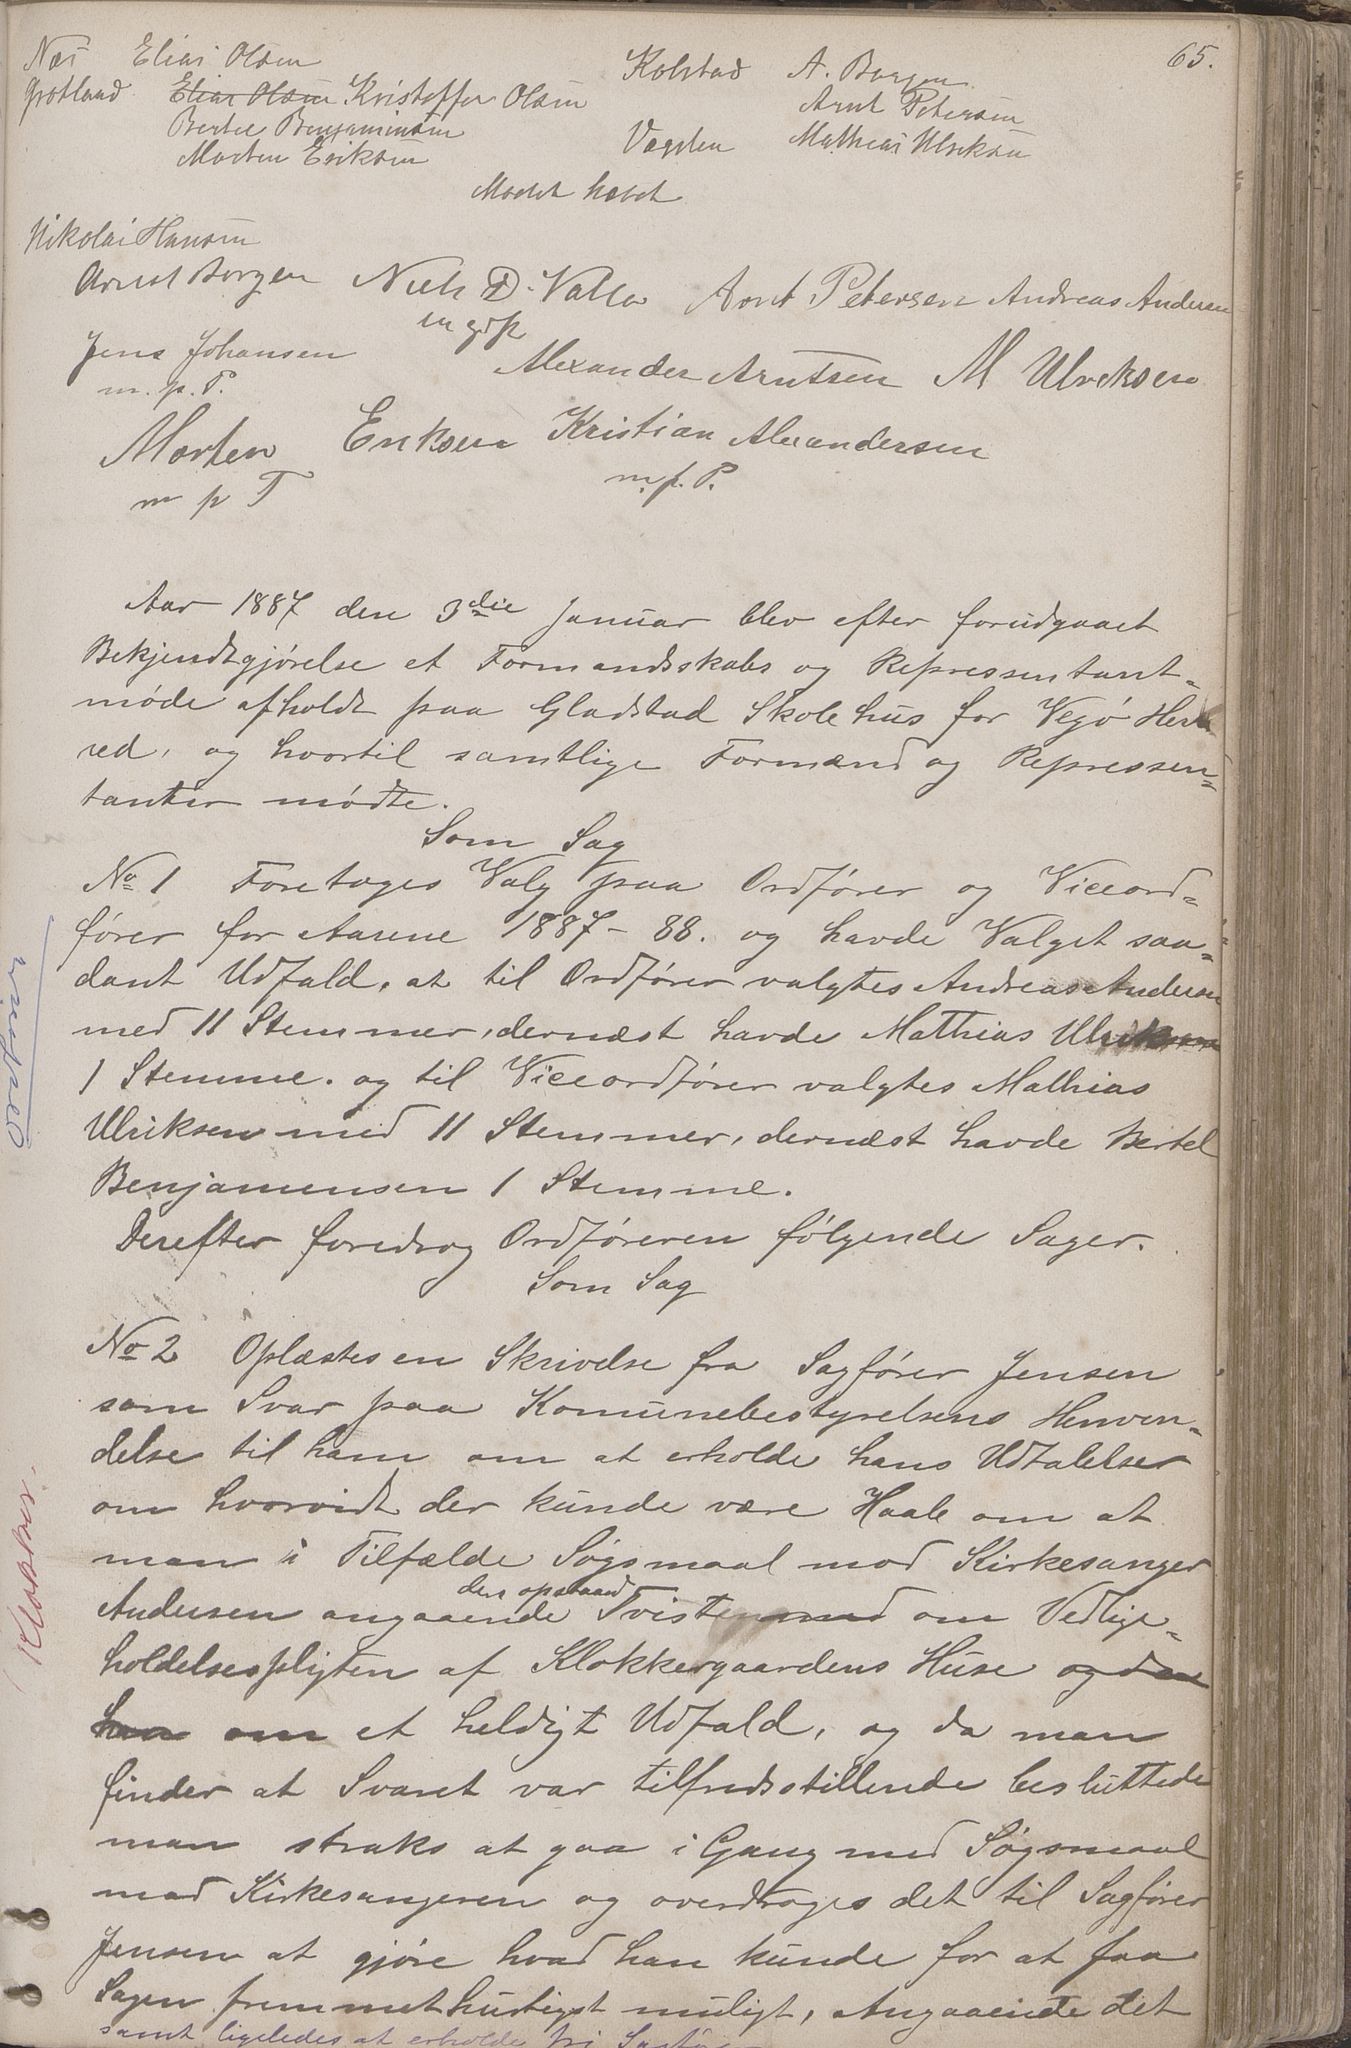 65.
Nes Elias Olsen
Grotland Elias Olsen Kristoffer Olsen
Bertel Benjaminsen
Morten Eriksen
Kolstad A. Borgen
Arnt Petersen
Vegden Mathias Ulriksen
Mødet hævet
Nikolai Hansen
Arnt Borgen Niels D. Valla Arnt Petersen Andreas Andersen
Jens Johansen
m. p. P.
Alexander Arntsen M Ulreksen
Morten Eriksen Kristian Alexandersen
m p P m. p. P.
Aar 1887 den 3die Januar blev efter forudgaaet
Bekjendtgjørelse et Formandsskabs og Repressentant-
møde afholdt paa Gladstad Skolehus for Vegø Her-
red, og hvortil samtlige Formænd og Repressen-
tanter mødte.
Som Sag
No 1 Foretoges Valg paa Ordfører og Viceord-
fører for Aarene 1887-88. og havde Valget saa-
dant Udfald, at til Ordfører valgtes Andreas Andersen
med 11 Stemmer, dernæst havde Mathias Ulriksen
1 Stemme. og til Viceordfører valgtes Mathias
Ulriksen med 11 Stemmer, dernæst havde Bertel
Benjamensen 1 Stemme.
Derefter foredrog Ordføreren følgende Sager.
Som Sag
No 2 Oplæstes en Skrivelse fra Sagfører Jensen
som Svar paa Komunebestyrelsens Henven-
delse til ham om at erholde hans Udtalelser
om hvorvidt der kunde være Haab om at
man i Tilfælde Søgsmaal mod Kirkesanger
Andersen angaaende den opstaaed Tvisten med om Vedlige-
holdelsespligten af Klokkergaardens Huse og den
han om et heldigt Udfald, og da man
finder at Svaret var tilfredsstillende besluttede
man straks at gaa i Gang med Søgsmaal
mod Kirkesangeren og overdroges det til Sagfører
Jensen at gjøre hvad han kunde for at faa
Sagen fremmet hurtigst muligt, Angaaende det
samt ligeledes at erholde fri
Ordfører
Klokker.